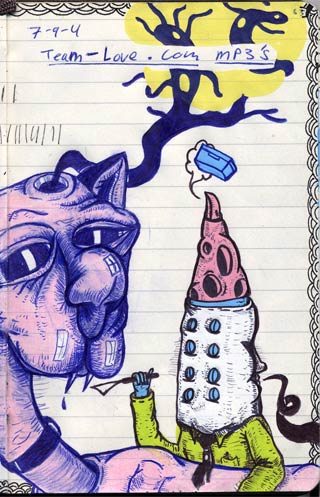 7-9-4
Team-Love.com MP3's